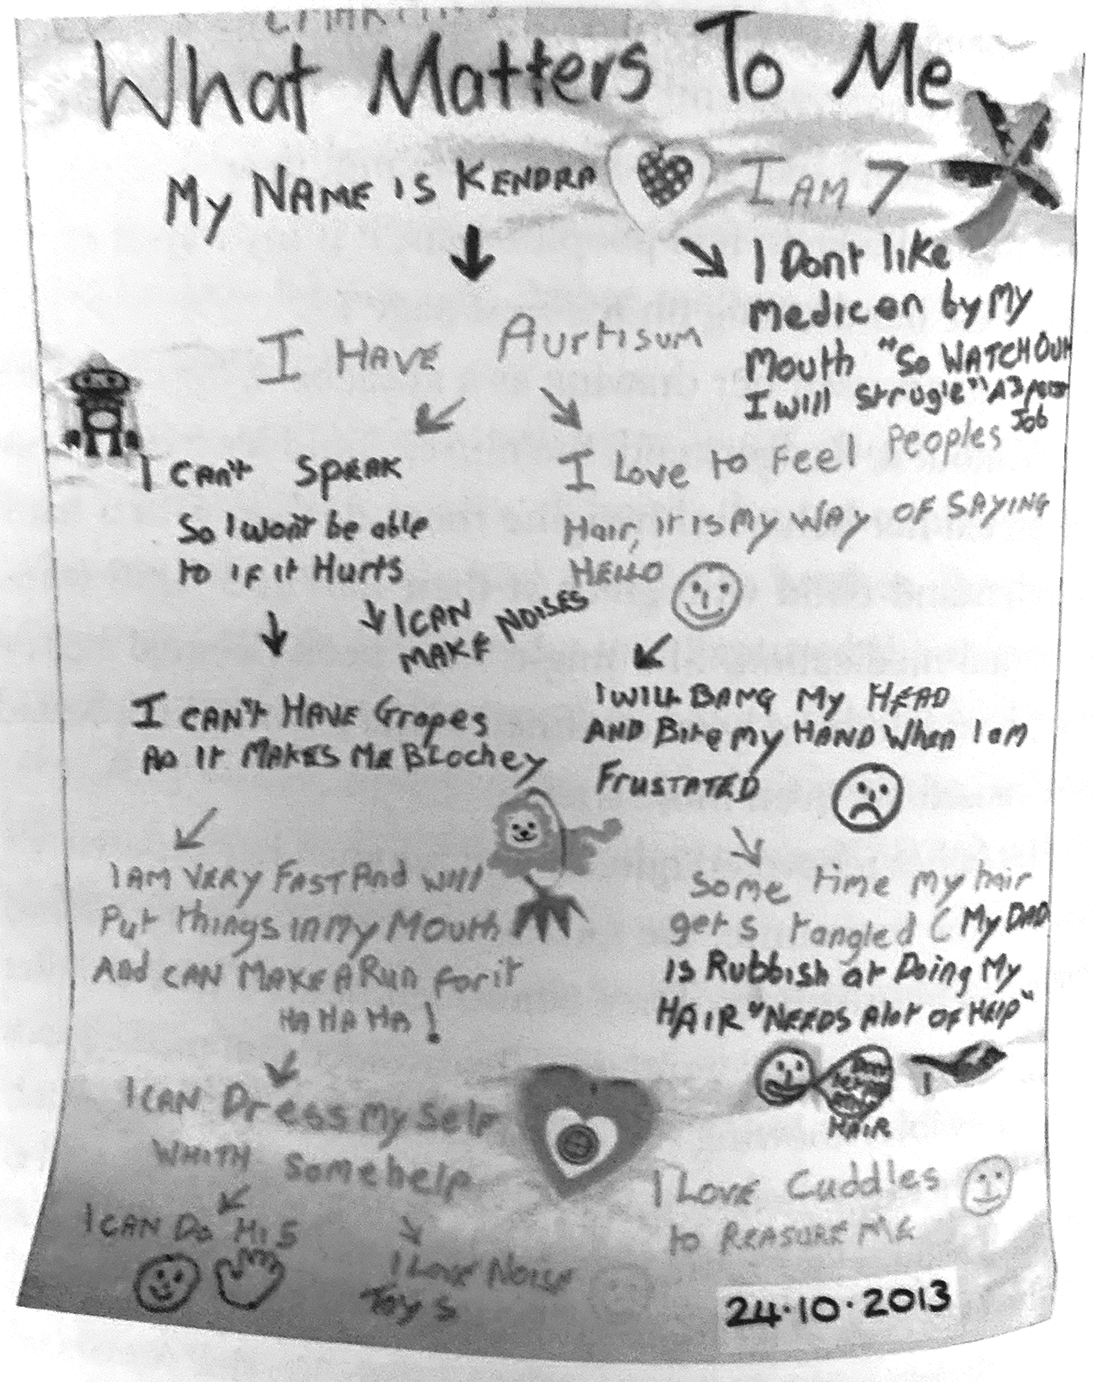 What Matters To Me
My NAME iS KENDRA
I AM 7
I Dont like
Medicen by My
Mouth "So WATCH OUt
I will Strugle" "A 3 person
Job
I HAVE Aurtisum
I CAN't SPEAK
So I won't be able
to iF it Hurts
I CAN
MAKE NOISES
I Love to Feel Peoples
Hair, it is My WAY OF SAYING
HELLO
I CAN't HAVE Grapes
AS It MAKES ME BLochey
I WILL BANG MY HEAD
AND Bite my HAND When I am
FRUSTATED
I AM VERY FAST And will
Put things in my Mouth
And CAN MAKE A Run for it
HA HA HA!
Some time my hair
gets tangled ( My DAD
is Rubbish at Doing My
HAIR "NEEDS A lot OF HElp"
HAIR
I CAN Dress My Self
WHITH Some help
I CAN Do Hi 5
I Love NOISE
Toys
I LOVE Cuddles
to REASURE ME
24·10·2013